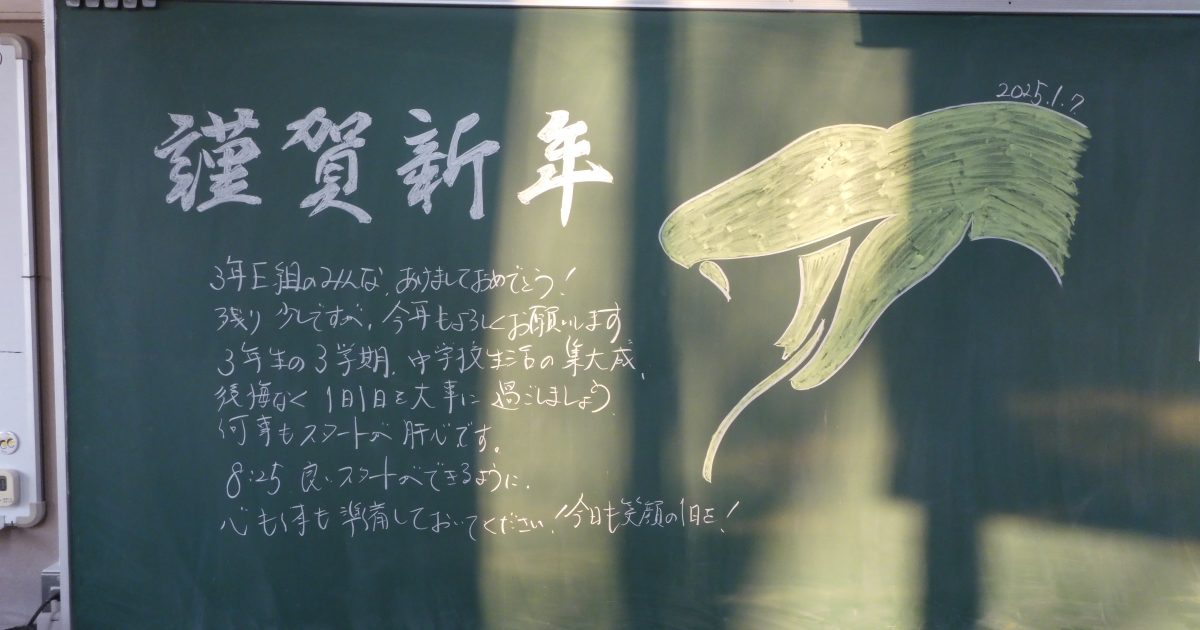 謹賀新年
2025.1.7
3年E組のみんな、あけましておめでとう!
残り少しですが、今年もよろしくお願いします
3年生の3学期、中学校生活の集大成、
後悔なく1日1日を大事に過ごしましょう
何事もスタートが肝心です。
8:25 良いスタートができるように、
心も体も準備しておいてください!今日も笑顔の1日を!